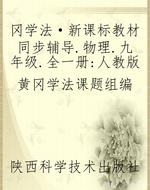 冈学法·新课标教材
同步辅导.物理.九
年级.全一册:人教版
黄冈学法课题组编
陕西科学技术出版社